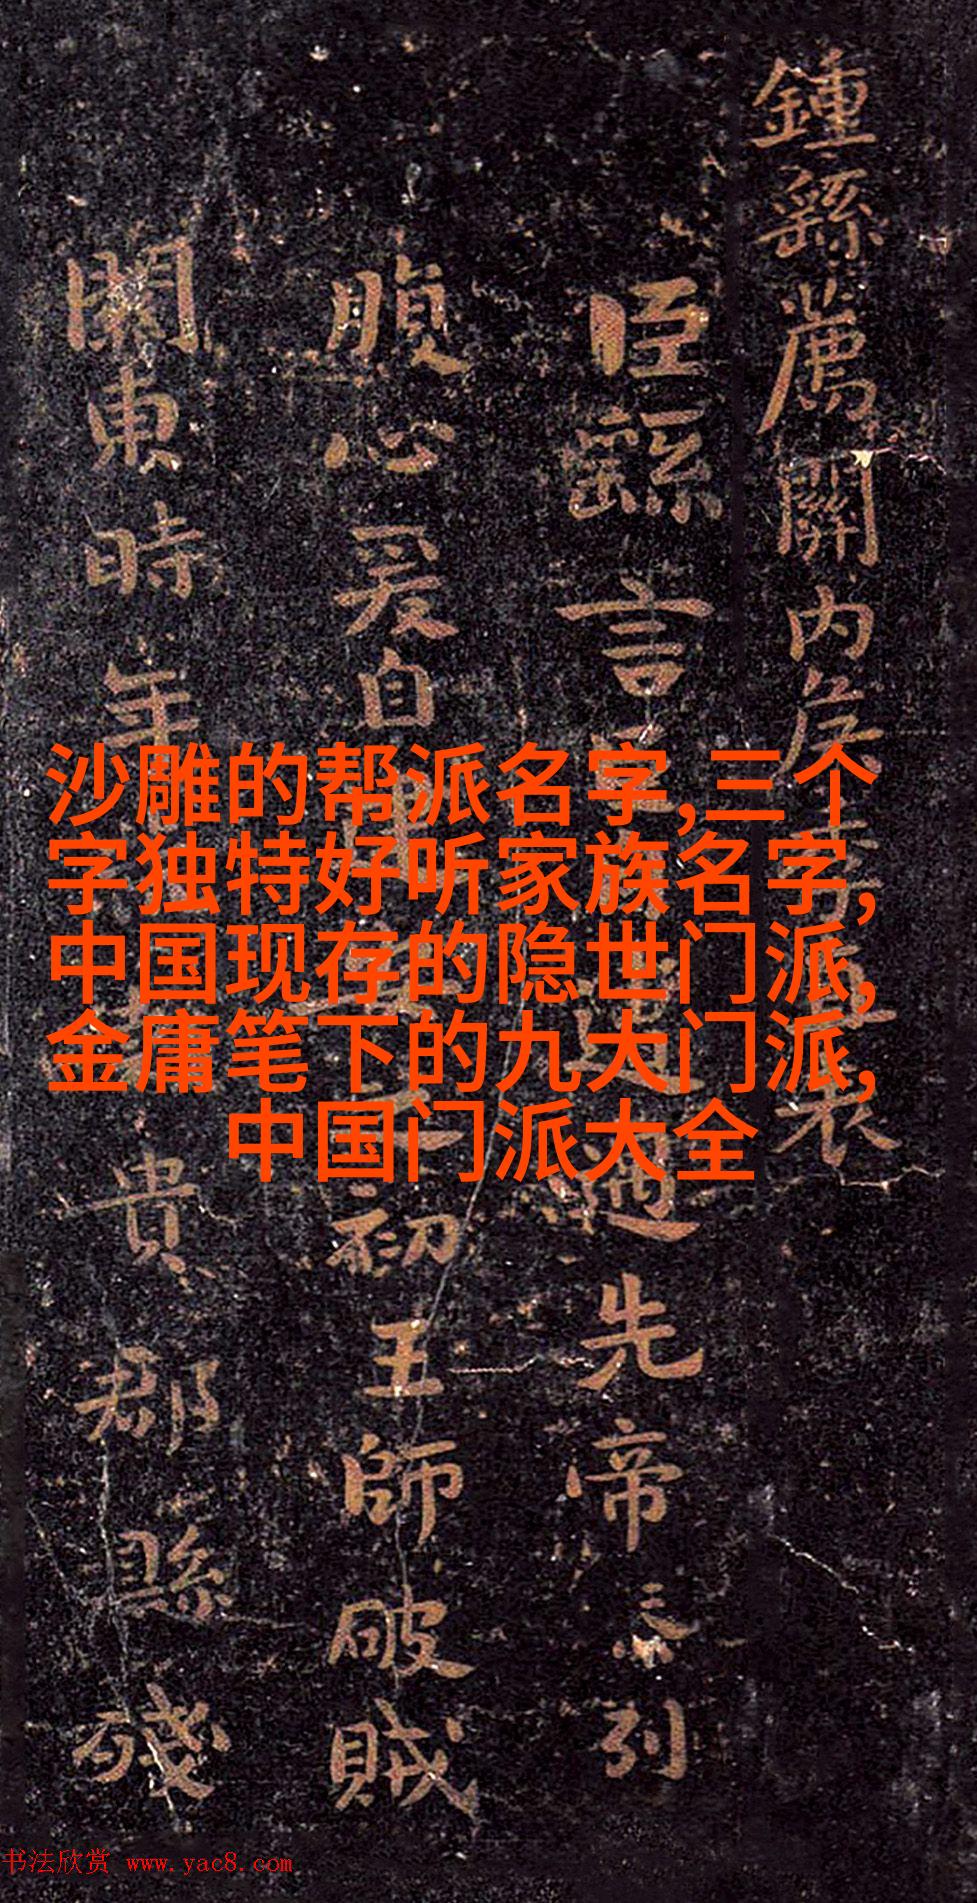 鍾繇薦關内侯季直表
臣繇言臣自遭遇先帝忝列
腹心爰自建安之初王師破賊
關東時年荒穀貴郡縣殘
沙雕的帮派名字,三个
字独特好听家族名字,
中国现存的隐世门派,
金庸笔下的九大门派,
中国门派大全
书法欣赏 www.yac8.com